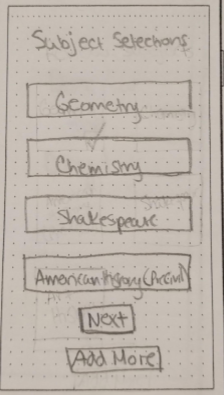 Subject Selections
Geometry
Chemistry
Shakespeare
American History
Next
Add More